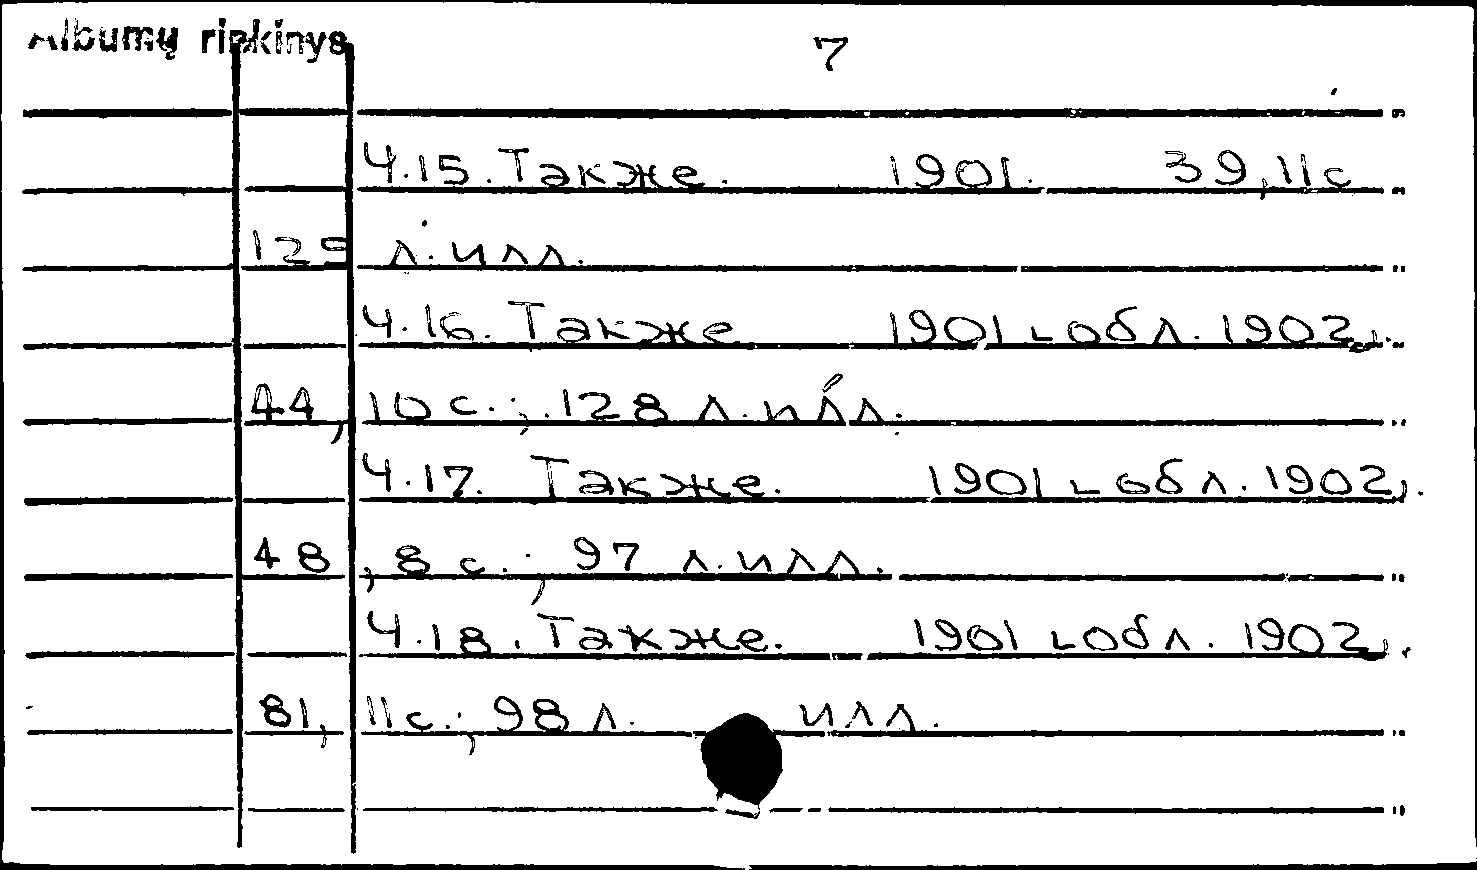 Albumų rinkinys
7
Ч.15. Также. 1901. 39, 11 с
125 л. илл.
Ч.16. Также 1901 [обл. 1902].
44, 10 с.; 128 л. илл.
Ч.17. Также. 1901 [обл. 1902].
48, 8 с.; 97 л. илл.
Ч.18. Также. 1901 [обл. 1902].
81, 11 с.; 98 л. илл.